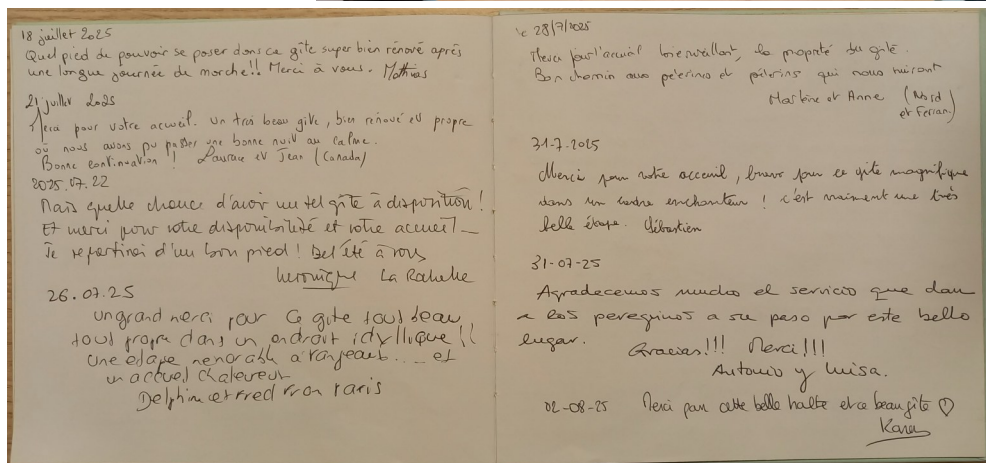 18 juillet 2025
Quel pied de pouvoir se poser dans ce gîte super bien rénové après
une longue journée de marche!! Merci à vous. Mathias
21 juillet 2025
Merci pour votre accueil. Un très beau gite, bien rénové et propre
où nous avons pu passer une bonne nuit au calme.
Bonne continuation ! Laurace et Jean (Canada)
2025.07.22
Mais quelle chance d'avoir un tel gîte à disposition !
Et merci pour votre disponibilité et votre accueil
Je repartirai d'un bon pied ! Bel été à vous
Véronique La
26.07.25
un grand merci pour ce gite tout beau
tout propre dans un endroit idyllique !!
Une étape memorable a .... et
un accueil chaleureux
Delphine et Fred from Paris
le 28/7/2025
Merci pour l'accueil bienveillant, la propreté du gite.
Bon chemin aux pelerines et pélerins qui nous suivent
Martine et Anne (Nord
et
31-7-2025
Merci pour votre acceuil, bravo pour ce gite magnifique
dans un cadre enchanteur ! c'est vraiment une très
belle étape. Sébastien
31-07-25
Agradecemos mucho el servicio que dan
a los peregrinos a su paso por este bello
lugar.
Gracias!!! Merci!!!
Antonio y Luisa.
02-08-25 Merci pour cette belle halte et ce beau gîte ♡
Karen